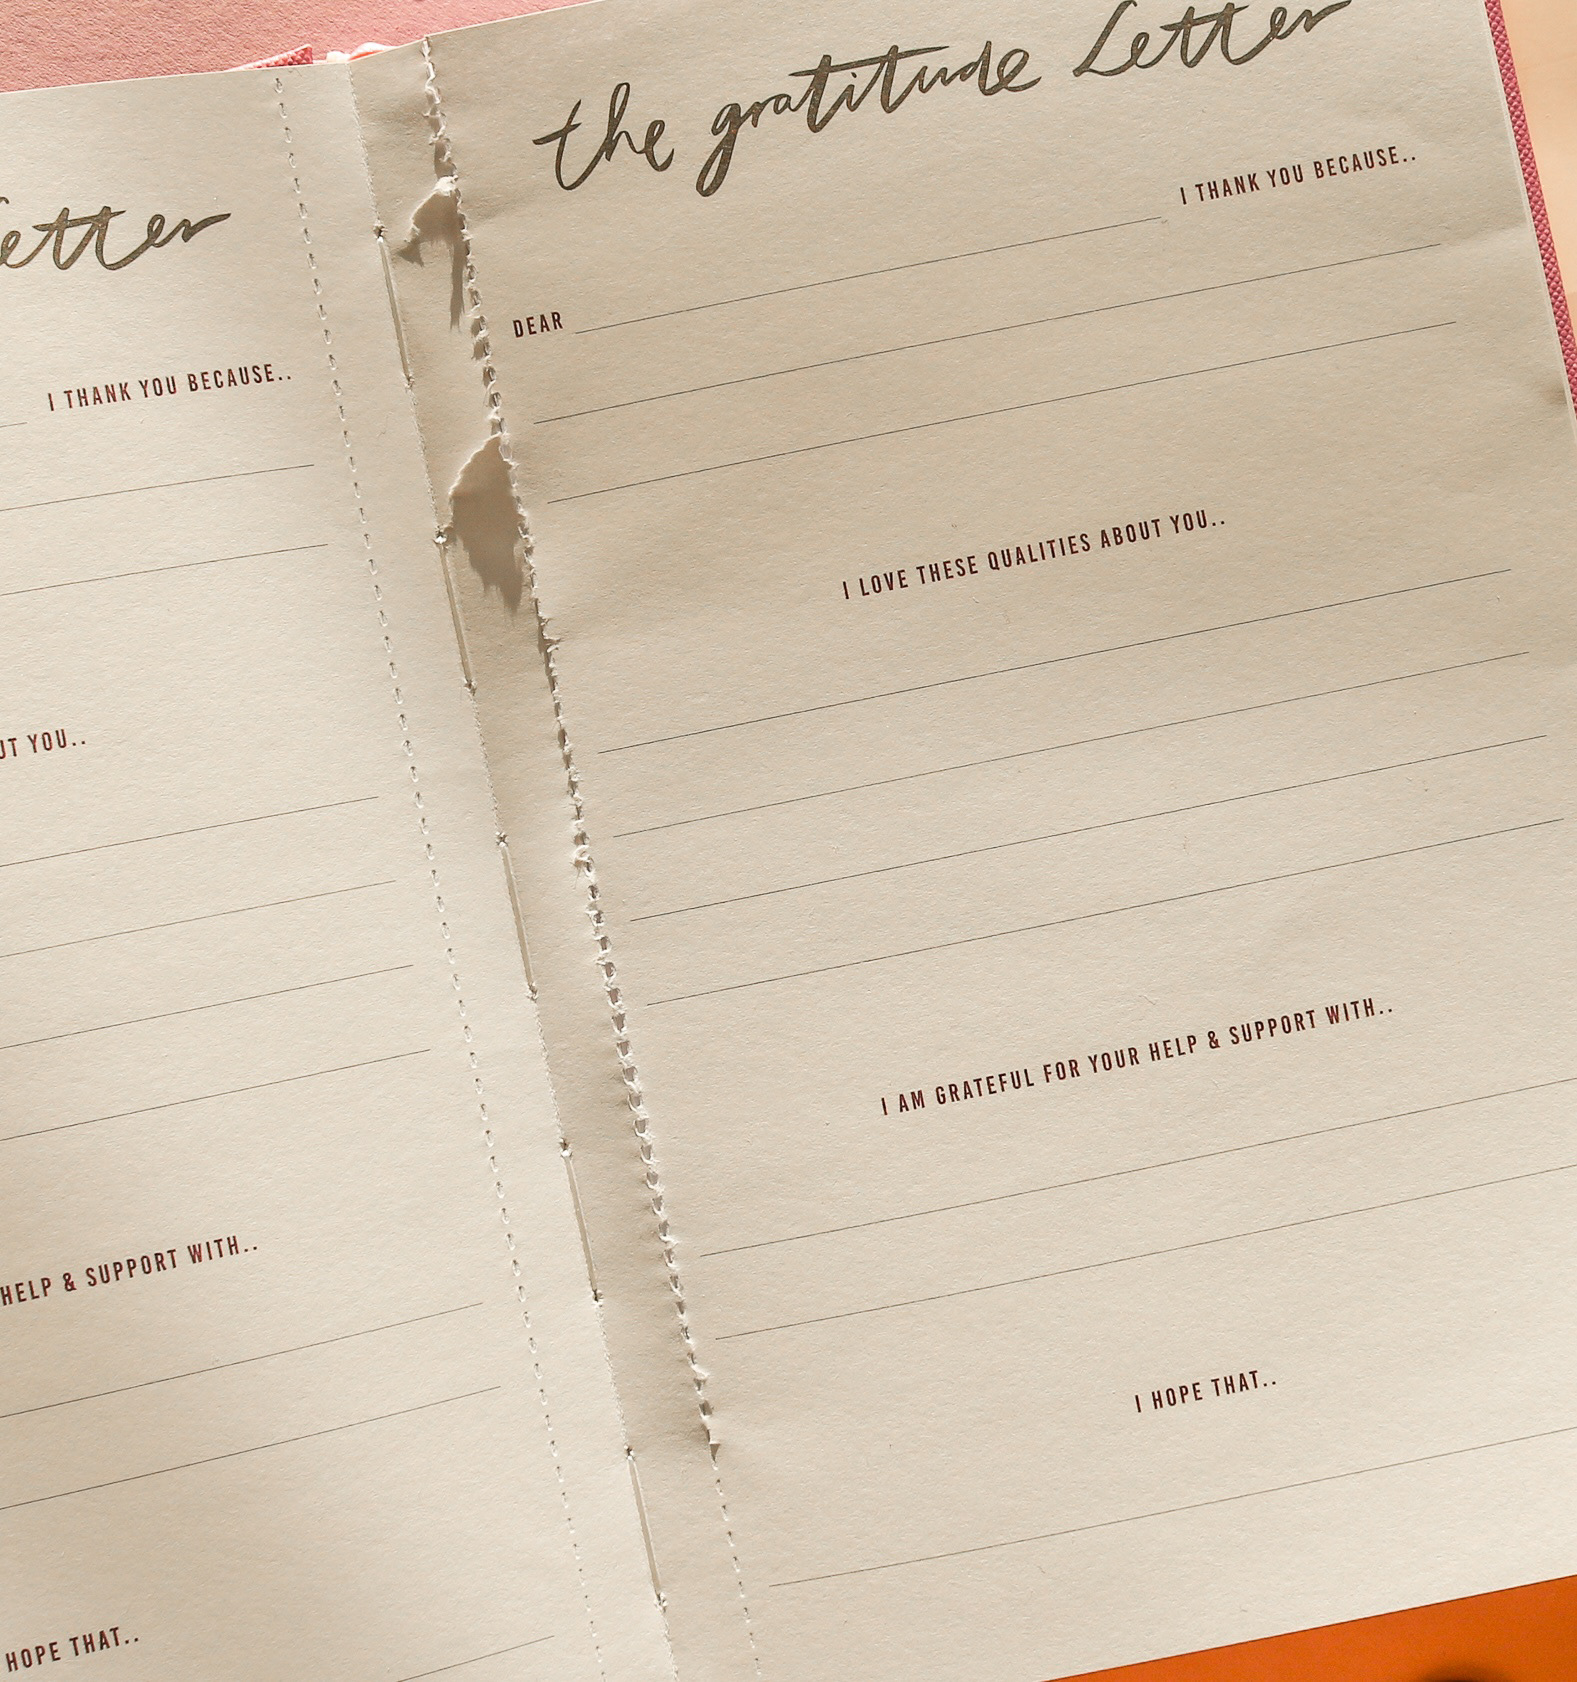 etter
I THANK YOU BECAUSE..
UT YOU..
HELP & SUPPORT WITH..
HOPE THAT..
the gratitude Letter
DEAR
I THANK YOU BECAUSE..
I LOVE THESE QUALITIES ABOUT YOU..
I AM GRATEFUL FOR YOUR HELP & SUPPORT WITH..
I HOPE THAT..